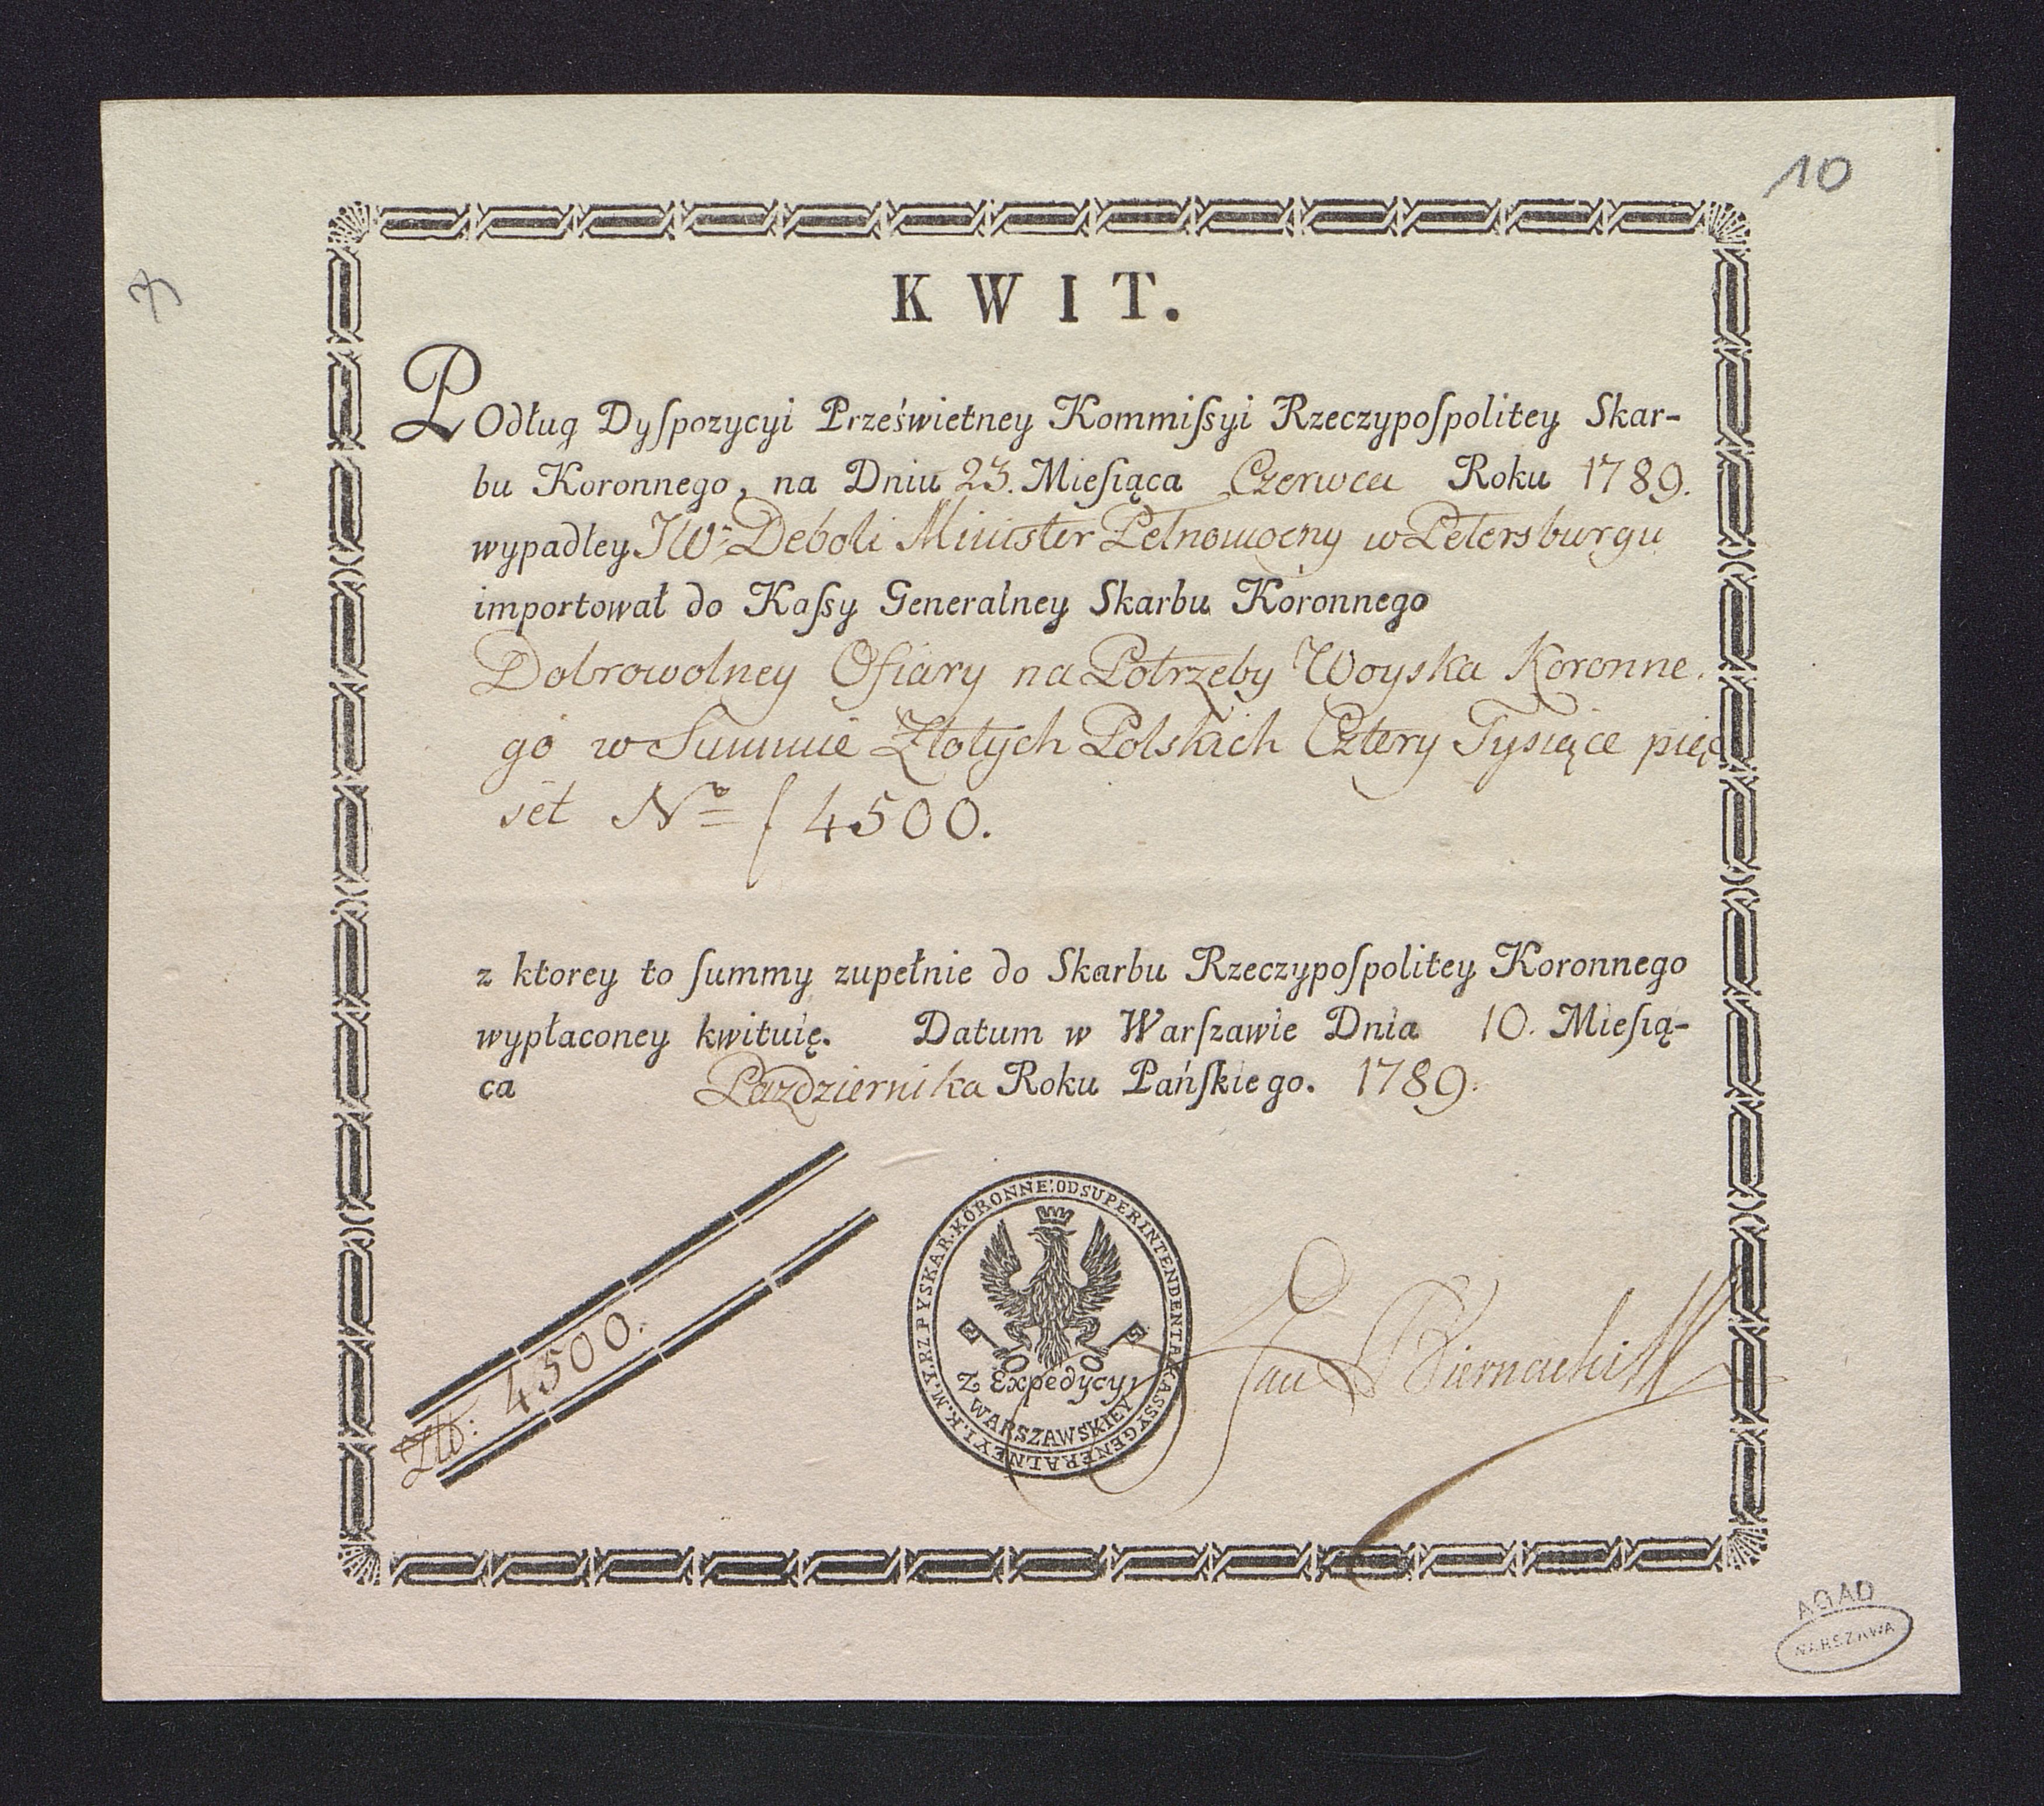 10
K W I T.
POdług Dyſpozycyi Prześwietney Kommiſsyi Rzeczypoſpolitey Skar-
bu Koronnego, na Dniu 23. Mieſiąca Czerwca Roku 1789.
wypadłey JW: Deboli Minister Pełnomocny w Petersburgu
importował do Kaſsy Generalney Skarbu Koronnego
Dobrowolney Ofiary na Potrzeby Woyska Koronne.
go w Summie Złotych Polskich Cztery Tysiące pięć
set No f 4500.
z ktorey to ſummy zupełnie do Skarbu Rzeczypoſpolitey Koronnego
wypłaconey kwituię. Datum w Warſzawie Dnia 10. Mieſią-
ca Października Roku Pańſkiego. 1789.
Złł: 4500.
OD SUPERINTENDENTA KASSY GENERALNEY I.K.M. Y RZPY SKAR. KORONNE:
Z Expedycyi
WARSZAWSKIEY
Jan Biernacki
AGAD
WARSZAWA